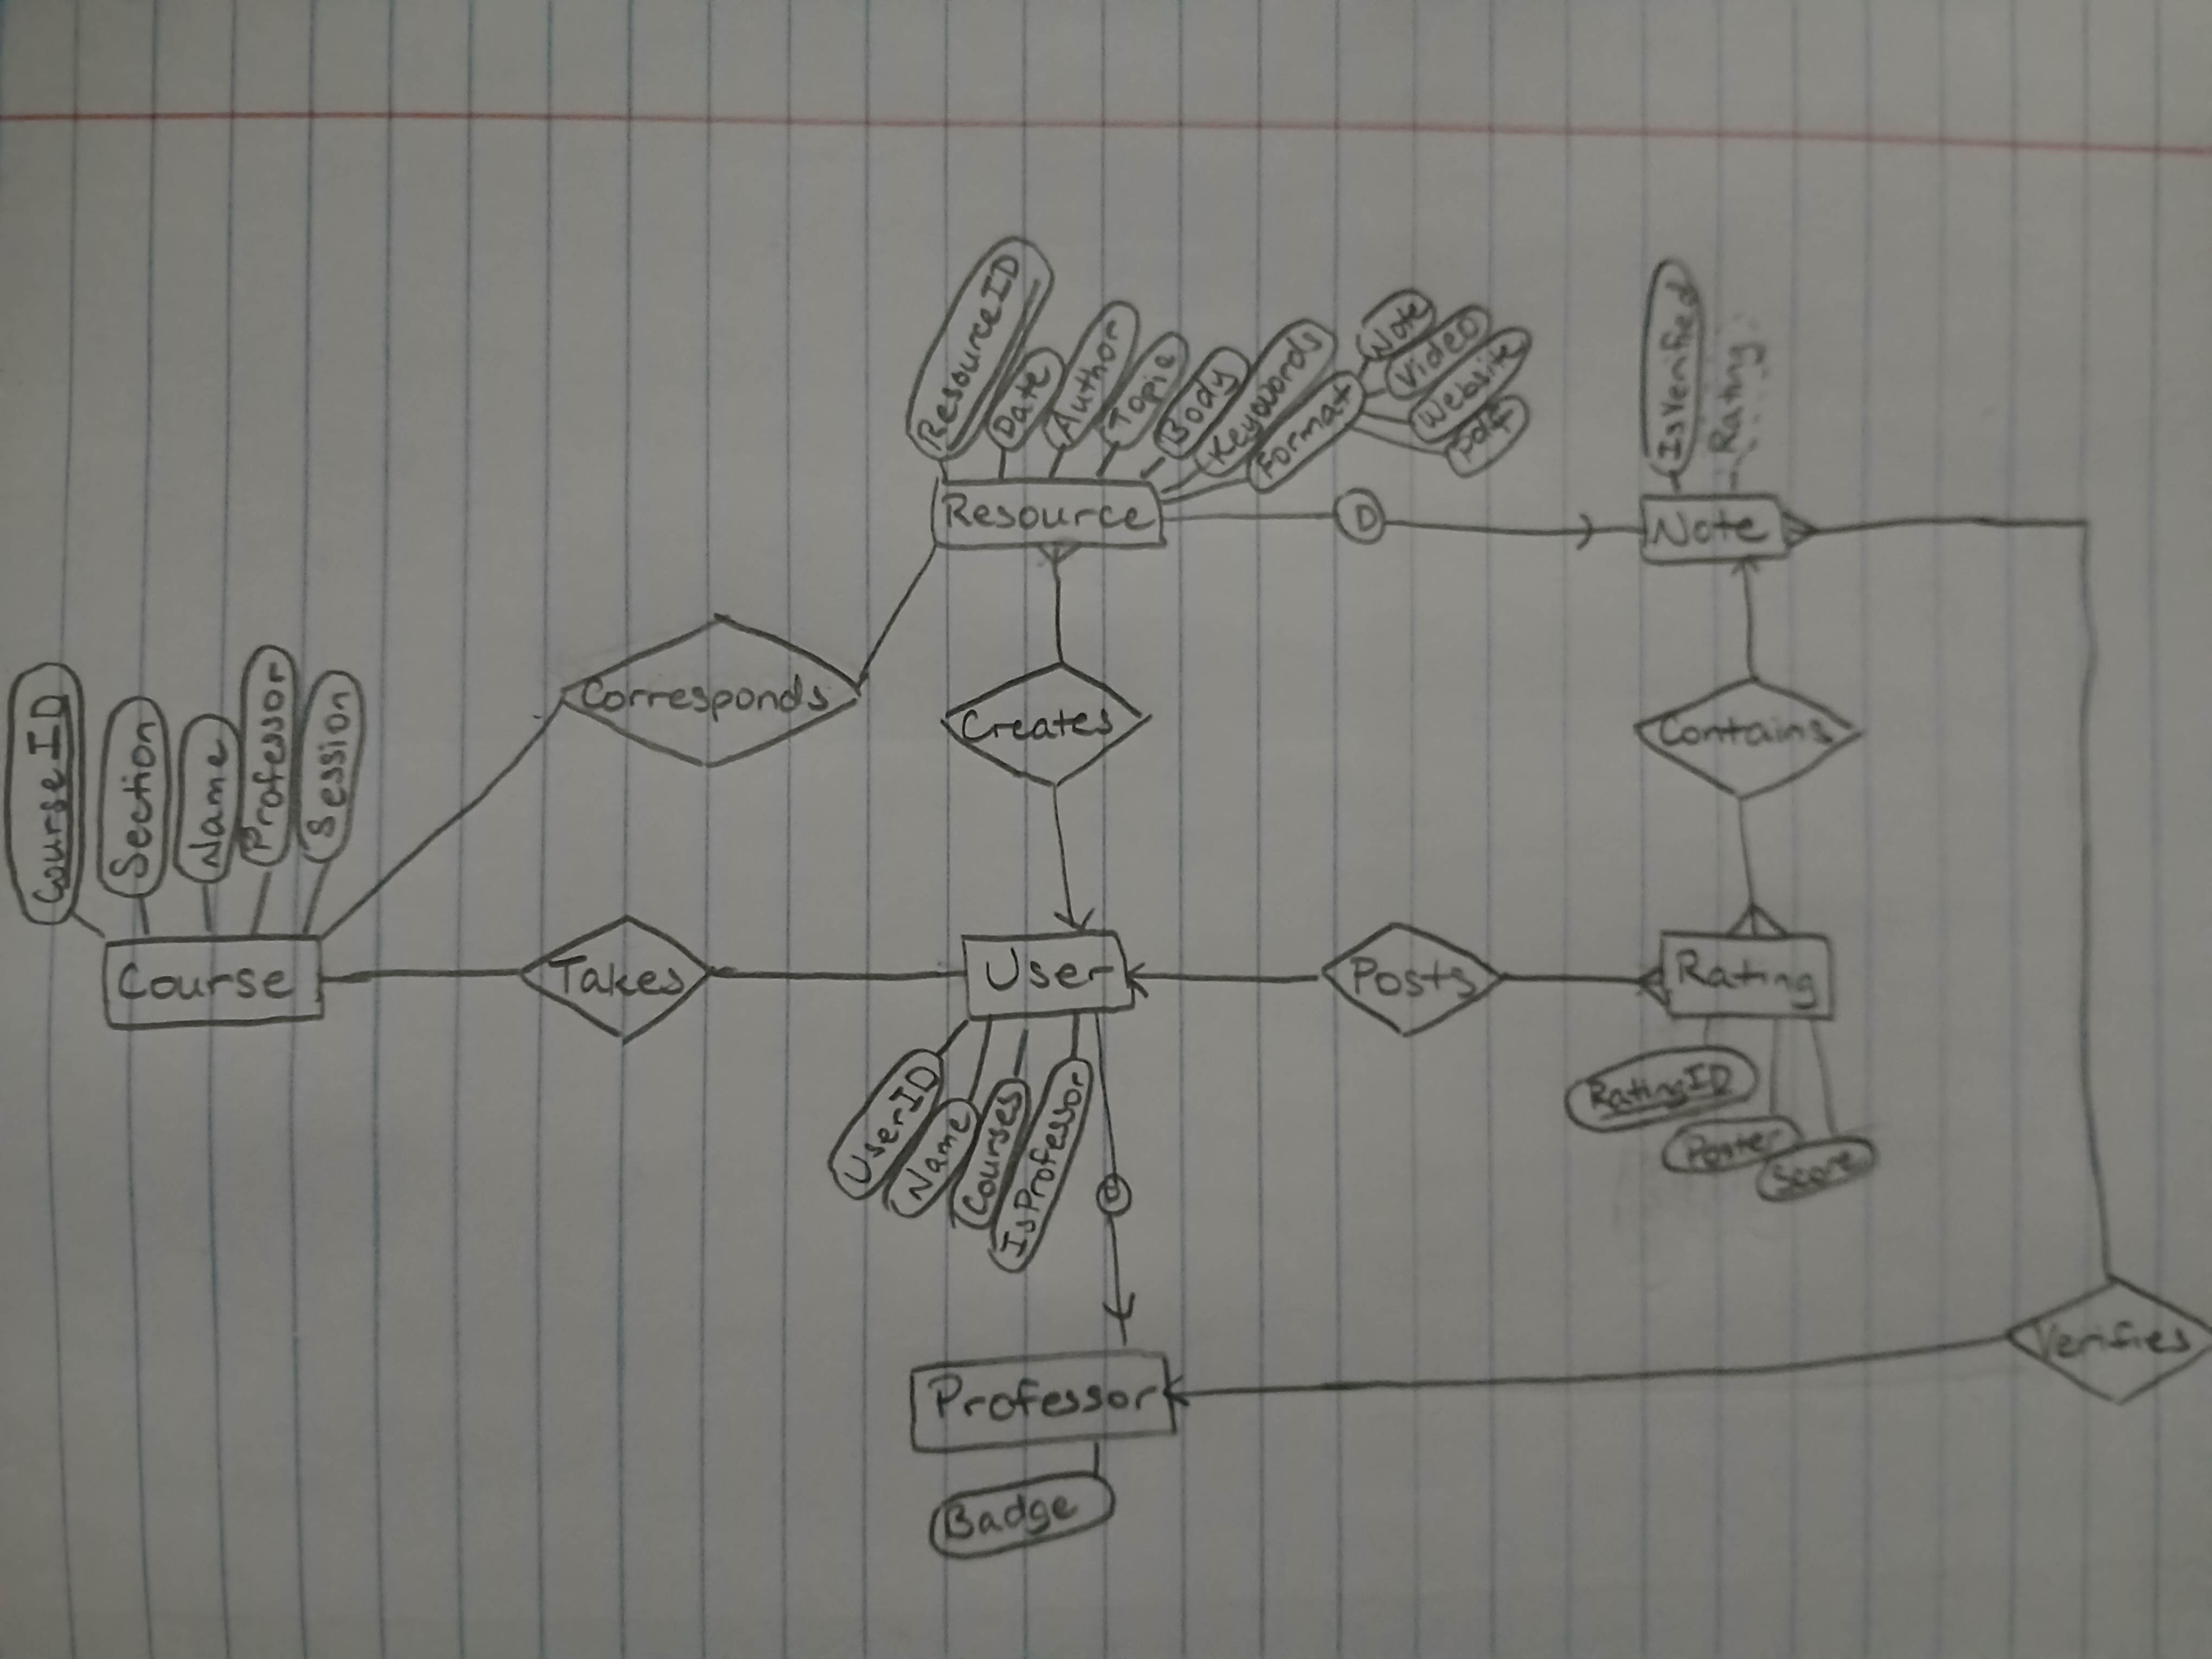 ResourceID
Date
Author
Topic
Body
Keywords
Format
Note
Video
Website
pdf
IsVerified
Rating
Resource
D
Note
Corresponds
Creates
Contains
CourseID
Section
Name
Professor
Session
Course
Takes
User
Posts
Rating
UserID
Name
Courses
IsProfessor
RatingID
Poster
Score
Verifies
Professor
Badge